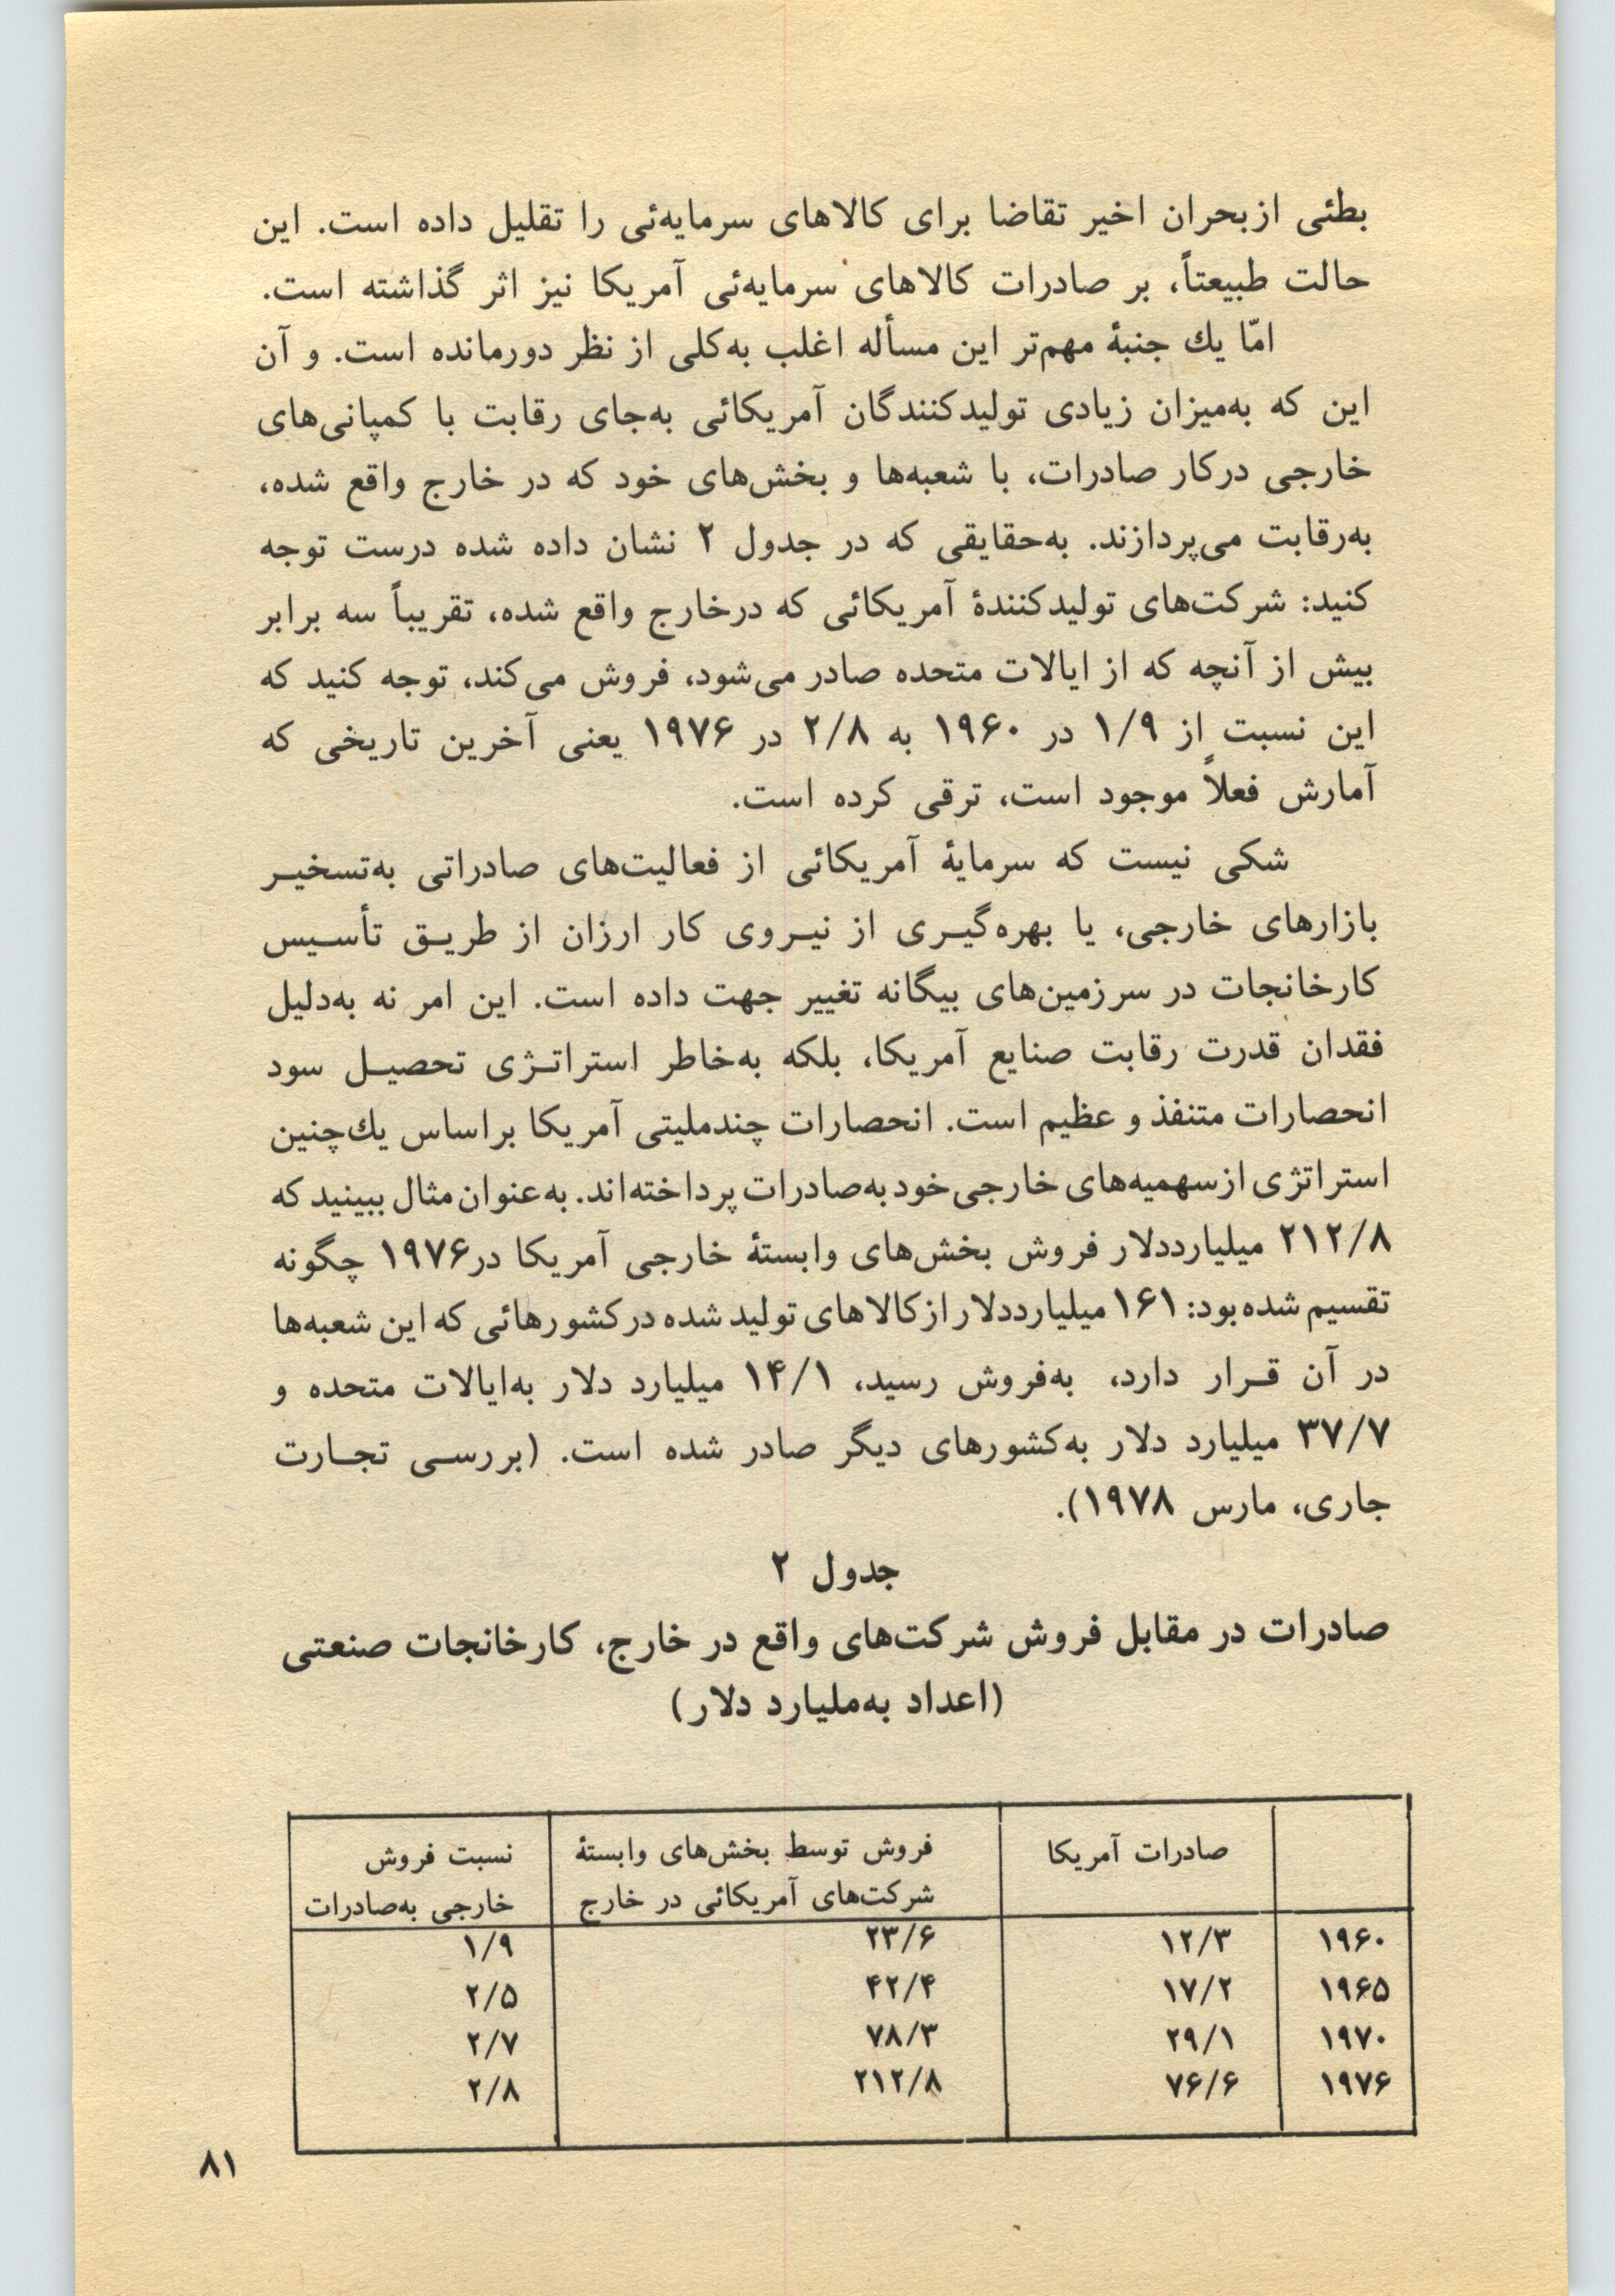 بطئی ازبحران اخیر تقاضا برای کالاهای سرمایه‌ئی را تقلیل داده است. این
حالت طبیعتاً، بر صادرات کالاهای سرمایه‌ئی آمریکا نیز اثر گذاشته است.
امّا یك جنبهٔ مهم‌تر این مسأله اغلب به‌کلی از نظر دورمانده است. و آن
این که به‌میزان زیادی تولیدکنندگان آمریکائی به‌جای رقابت با کمپانی‌های
خارجی درکار صادرات، با شعبه‌ها و بخش‌های خود که در خارج واقع شده،
به‌رقابت می‌پردازند. به‌حقایقی که در جدول ۲ نشان داده شده درست توجه
کنید: شرکت‌های تولیدکنندهٔ آمریکائی که درخارج واقع شده، تقریباً سه برابر
بیش از آنچه که از ایالات متحده صادر می‌شود، فروش می‌کند، توجه کنید که
این نسبت از ۱/۹ در ۱۹۶۰ به ۲/۸ در ۱۹۷۶ یعنی آخرین تاریخی که
آمارش فعلاً موجود است، ترقی کرده است.
شکی نیست که سرمایهٔ آمریکائی از فعالیت‌های صادراتی به‌تسخیـر
بازارهای خارجی، یا بهره‌گیـری از نیـروی کار ارزان از طریـق تأسـیس
کارخانجات در سرزمین‌های بیگانه تغییر جهت داده است. این امر نه به‌دلیل
فقدان قدرت رقابت صنایع آمریکا، بلکه به‌خاطر استراتـژی تحصیـل سود
انحصارات متنفذ و عظیم است. انحصارات چندملیتی آمریکا براساس یك‌چنین
استراتژی ازسهمیه‌های خارجی‌خود به‌صادرات پرداخته‌اند. به‌عنوان مثال ببینید که
۲۱۲/۸ میلیارددلار فروش بخش‌های وابستهٔ خارجی آمریکا در۱۹۷۶ چگونه
تقسیم شده‌بود: ۱۶۱ میلیارددلار ازکالاهای تولید شده درکشورهائی که این شعبه‌ها
در آن قـرار دارد، به‌فروش رسید، ۱۴/۱ میلیارد دلار به‌ایالات متحده و
۳۷/۷ میلیارد دلار به‌کشورهای دیگر صادر شده است. (بررسـی تجـارت
جاری، مارس ۱۹۷۸).
جدول ۲
صادرات در مقابل فروش شرکت‌های واقع در خارج، کارخانجات صنعتی
(اعداد به‌ملیارد دلار)
صادرات آمریکا فروش توسط بخش‌های وابستهٔ نسبت فروش
شرکت‌های آمریکائی در خارج خارجی به‌صادرات
۱۹۶۰ ۱۲/۳ ۲۳/۶ ۱/۹
۱۹۶۵ ۱۷/۲ ۴۲/۴ ۲/۵
۱۹۷۰ ۲۹/۱ ۷۸/۳ ۲/۷
۱۹۷۶ ۷۶/۶ ۲۱۲/۸ ۲/۸
۸۱